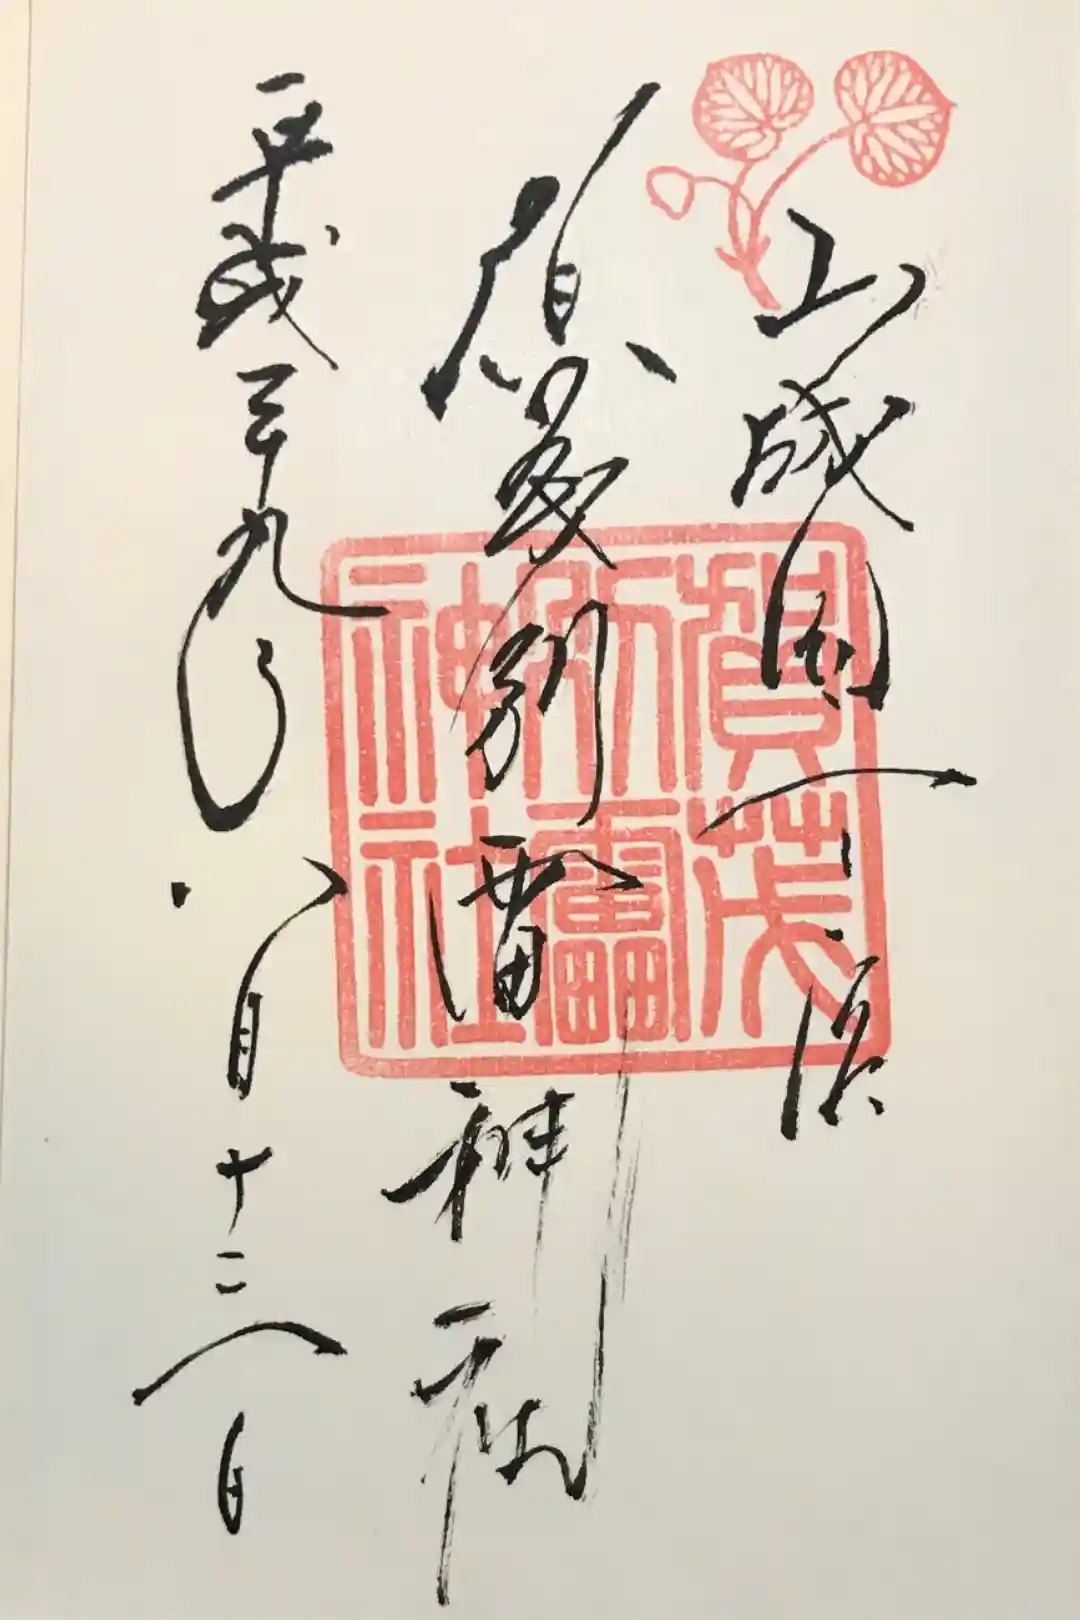 山城国一宮
賀茂別雷神社
平成二十九年八月十三日
賀茂
別雷
神社